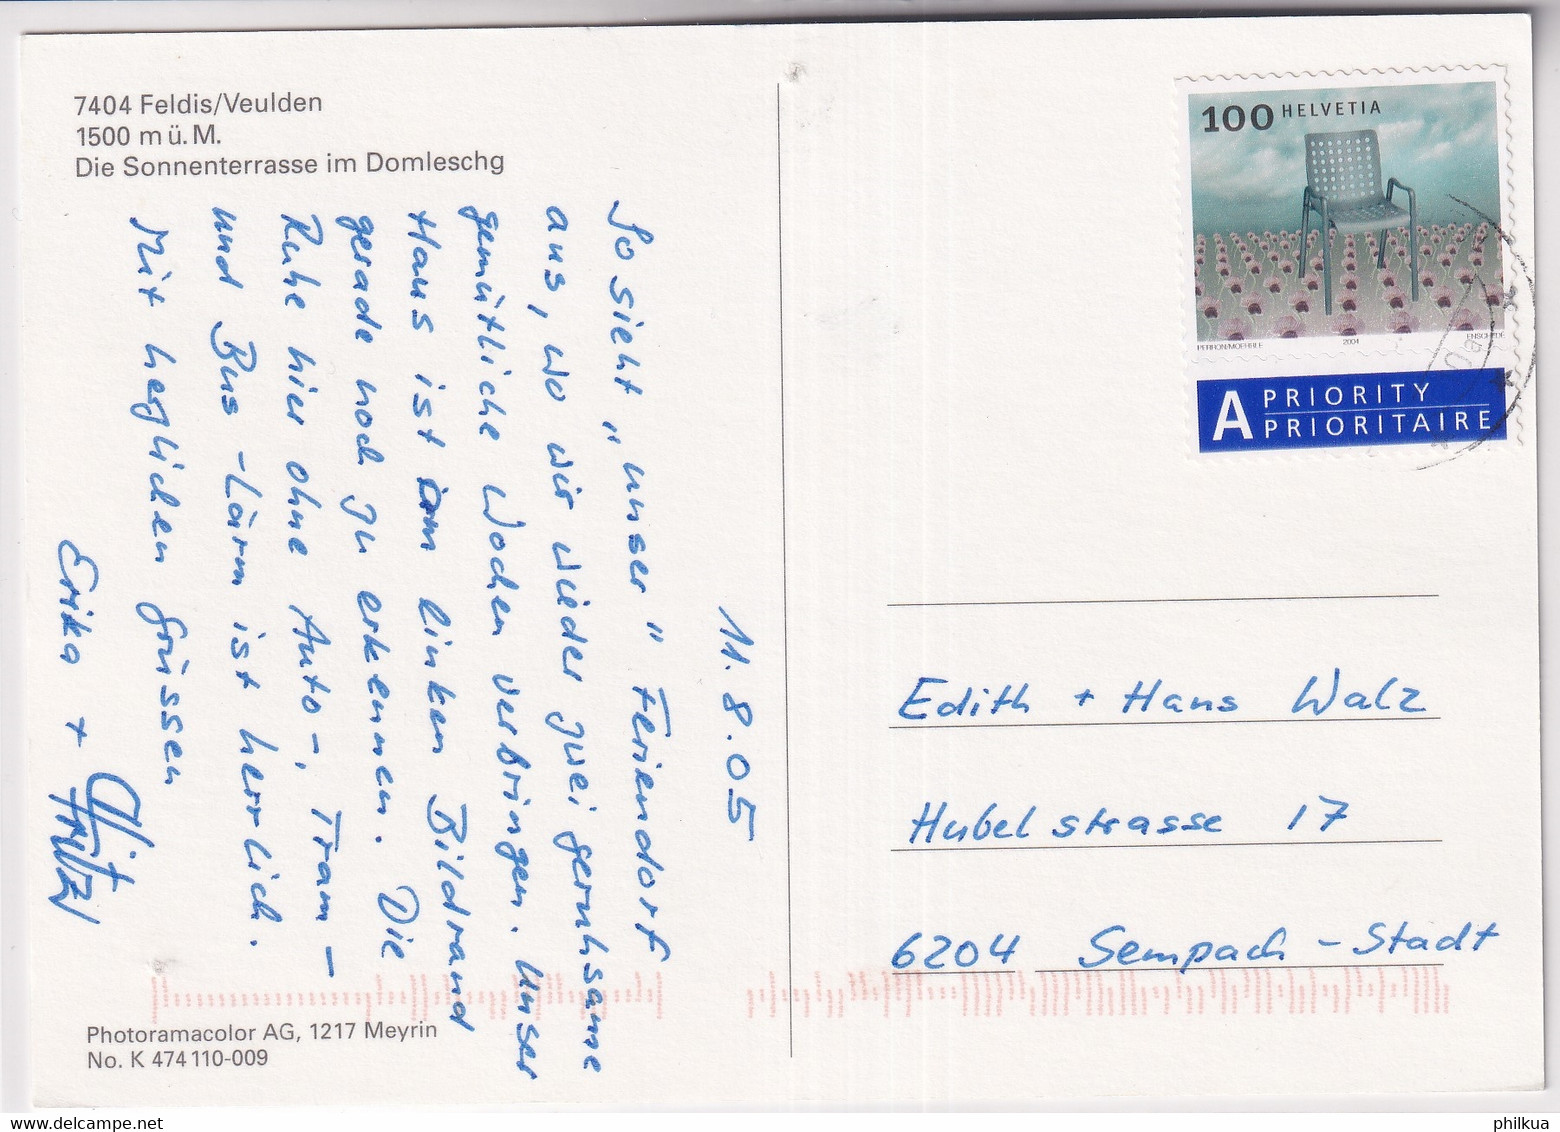 7404 Feldis/Veulden
1500 m ü. M.
Die Sonnenterrasse im Domleschg
11.8.05
So sieht "unser" Feriendorf
aus, wo wir wieder zwei geruhsame
gemütliche Wochen verbringen. Unser
Haus ist am linken Bildrand
gerade noch zu erkennen. Die
Ruhe hier ohne Auto-, Tram-
und Bus-Lärm ist herrlich.
Mit herzlichen Grüssen
Erika +
Photoramacolor AG, 1217 Meyrin
No. K 474110-009
100 HELVETIA
2004 ENSCHEDE
A PRIORITY
PRIORITAIRE
Edith + Hans Walz
Hubelstrasse 17
6204 Sempach-Stadt
philkua